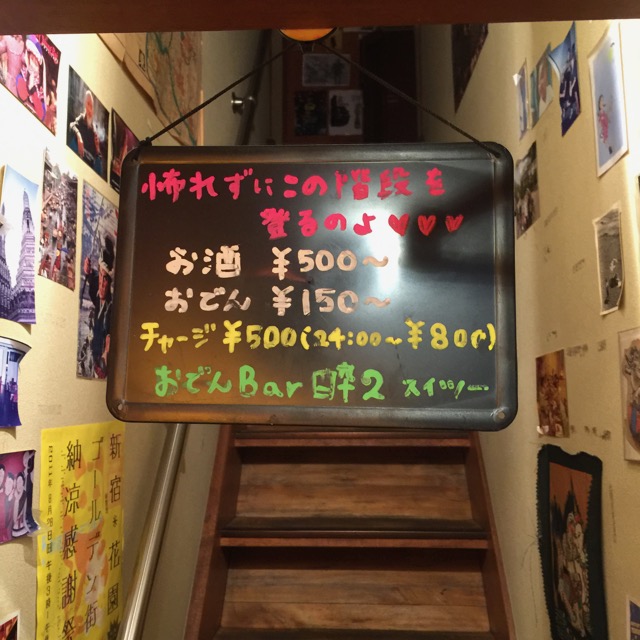 怖れずにこの階段を
登るのよ♥♥♥
お酒 ¥500〜
おでん ¥150〜
チャージ¥500(24:00〜¥800)
おでんBar 酔2 スイッツー
新宿*花園
ゴールデン街
納涼感謝祭